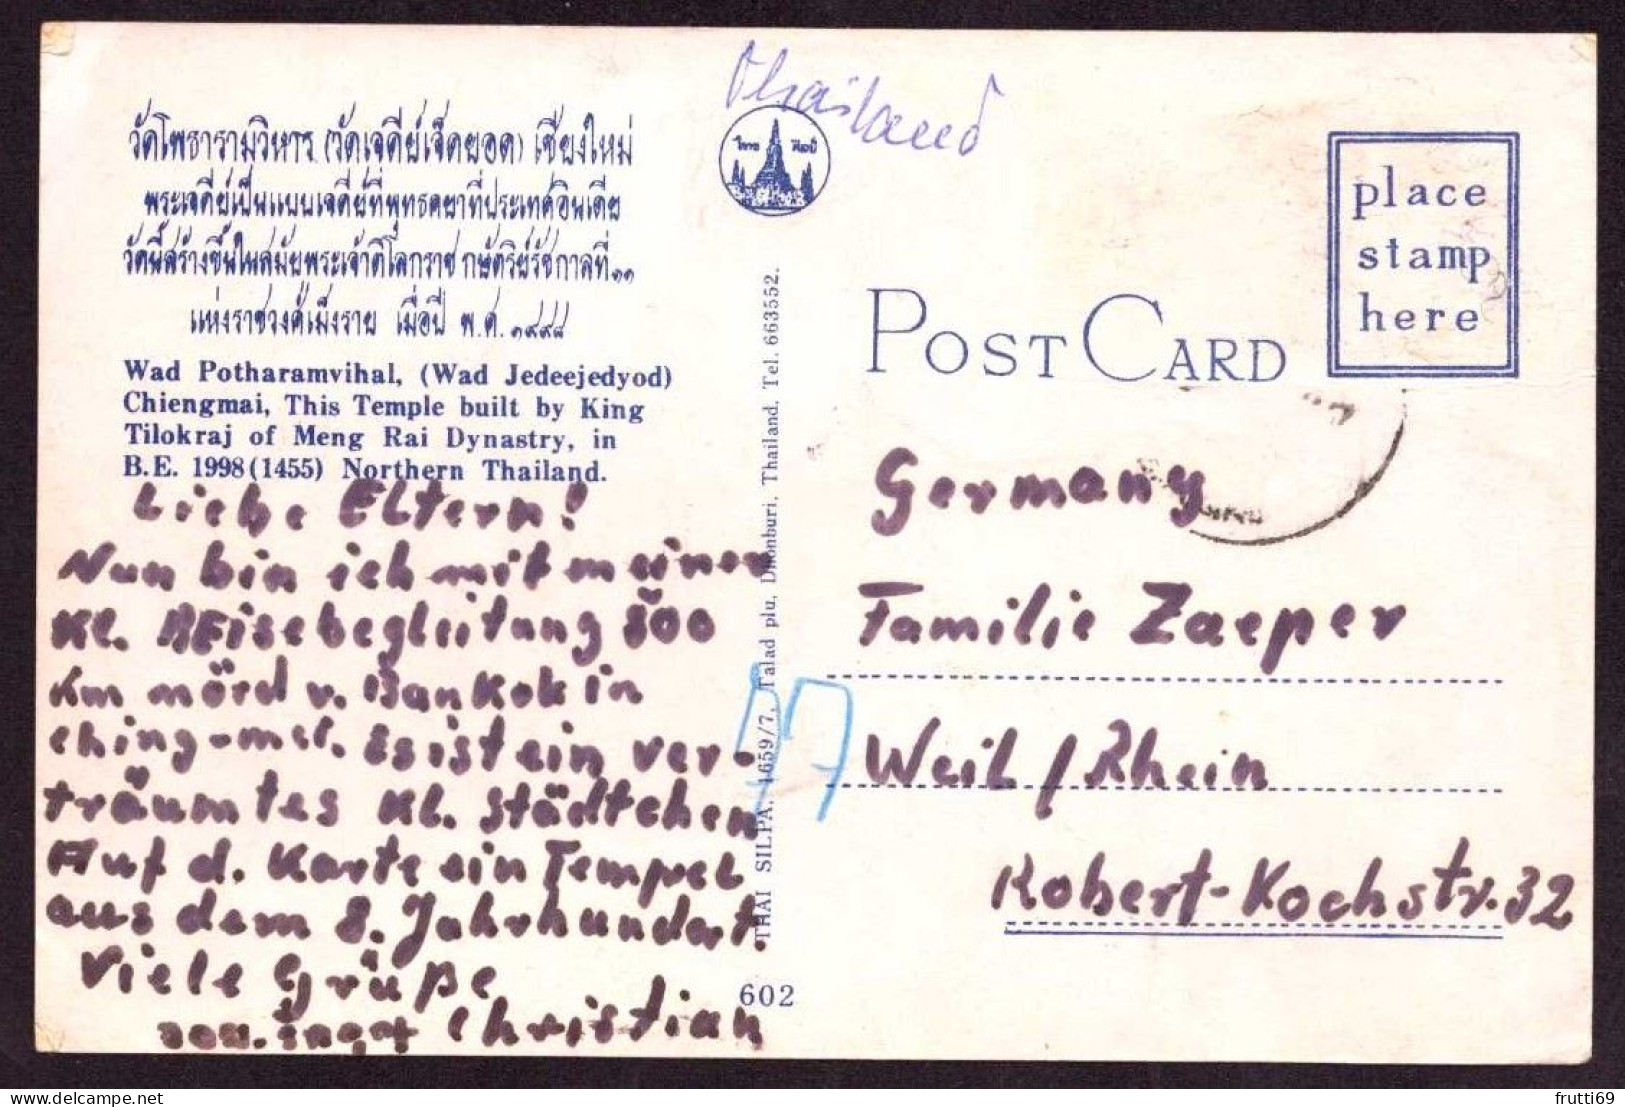 Thailand
ไทย ศิลป์
วัดโพธารามวิหาร (วัดเจดีย์เจ็ดยอด) เชียงใหม่
พระเจดีย์เป็นแบบเจดีย์ที่พุทธคยาที่ประเทศอินเดีย
วัดนี้สร้างขึ้นในสมัยพระเจ้าติโลกราช กษัตริย์รัชกาลที่ ๑๑
แห่งราชวงศ์เม็งราย เมื่อปี พ.ศ. ๑๙๙๘
Wad Potharamvihal, (Wad Jedeejedyod)
Chiengmai, This Temple built by King
Tilokraj of Meng Rai Dynastry, in
B.E. 1998(1455) Northern Thailand.
Liebe Eltern!
Nun bin ich mit meiner
Kl. Reisebegleitung 800
Km nörd v. Bankok in
ching-mei. Es ist ein ver-
träumtes Kl. Städtchen
Auf d. Karte ein Tempel
aus dem 8. Jahrhundert.
Viele Grüße
Christian
THAI SILPA. 1659/7, Talad plu, Dhonburi, Thailand. Tel. 663552.
602
POST CARD
place
stamp
here
Germany
Familie Zaeper
Weil / Rhein
Robert-Kochstr. 32
frutti69